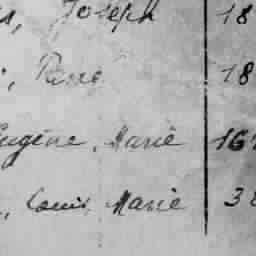 Joseph 18
, René 18
Eugène, Marie 16
, Louis, Marie 3